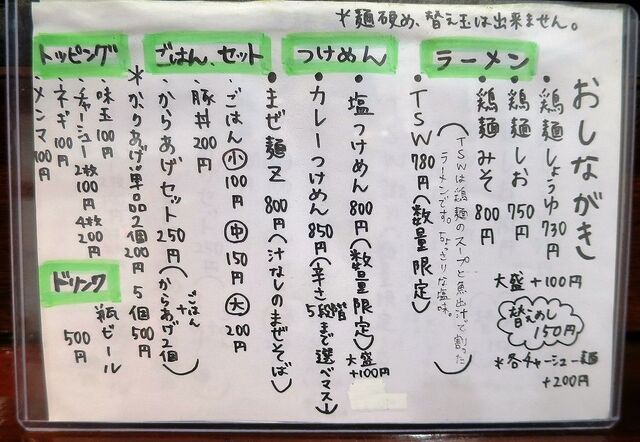 *麺硬め、替え玉は出来ません。
おしながき
ラーメン
・鶏麺しょうゆ 730円
・鶏麺しお 750円
・鶏麺みそ 800円
大盛+100円
替えめし150円
*各チャーシュー麺+200円
・TSW 780円(数量限定)
(TSWは鶏麺のスープと魚出汁で割ったラーメンです。ちょっぴりな塩味。)
つけめん
・塩つけめん 800円(数量限定)大盛+100円
・カレーつけめん 850円(辛さ5段階まで選べマス)
・まぜ麺Z 800円(汁なしのまぜそば)
ごはん、セット
・ごはん 小 100円 中 150円 大 200円
・豚丼 200円
・からあげセット 250円(ごはん+からあげ2個)
*からあげ単品2個200円 5個500円
トッピング
・味玉 100円
・チャーシュー2枚100円 4枚200円
・ネギ 100円
・メンマ 100円
ドリンク
瓶ビール 500円